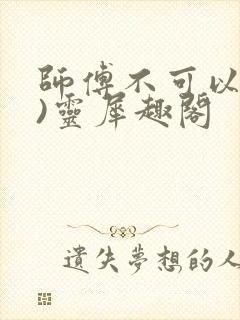 師傅不可以
)靈犀趣閣
遺失夢想的人